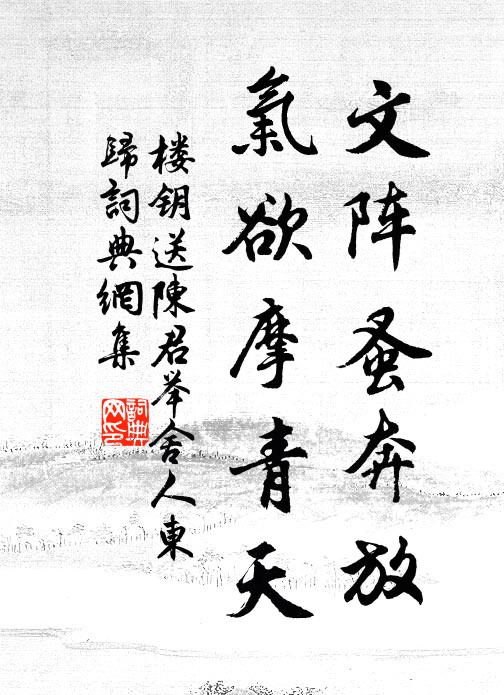 文阵蚤奔放
氣欲摩青天
楼钥送陳君举舍人東
歸詞典網集
詞典网印